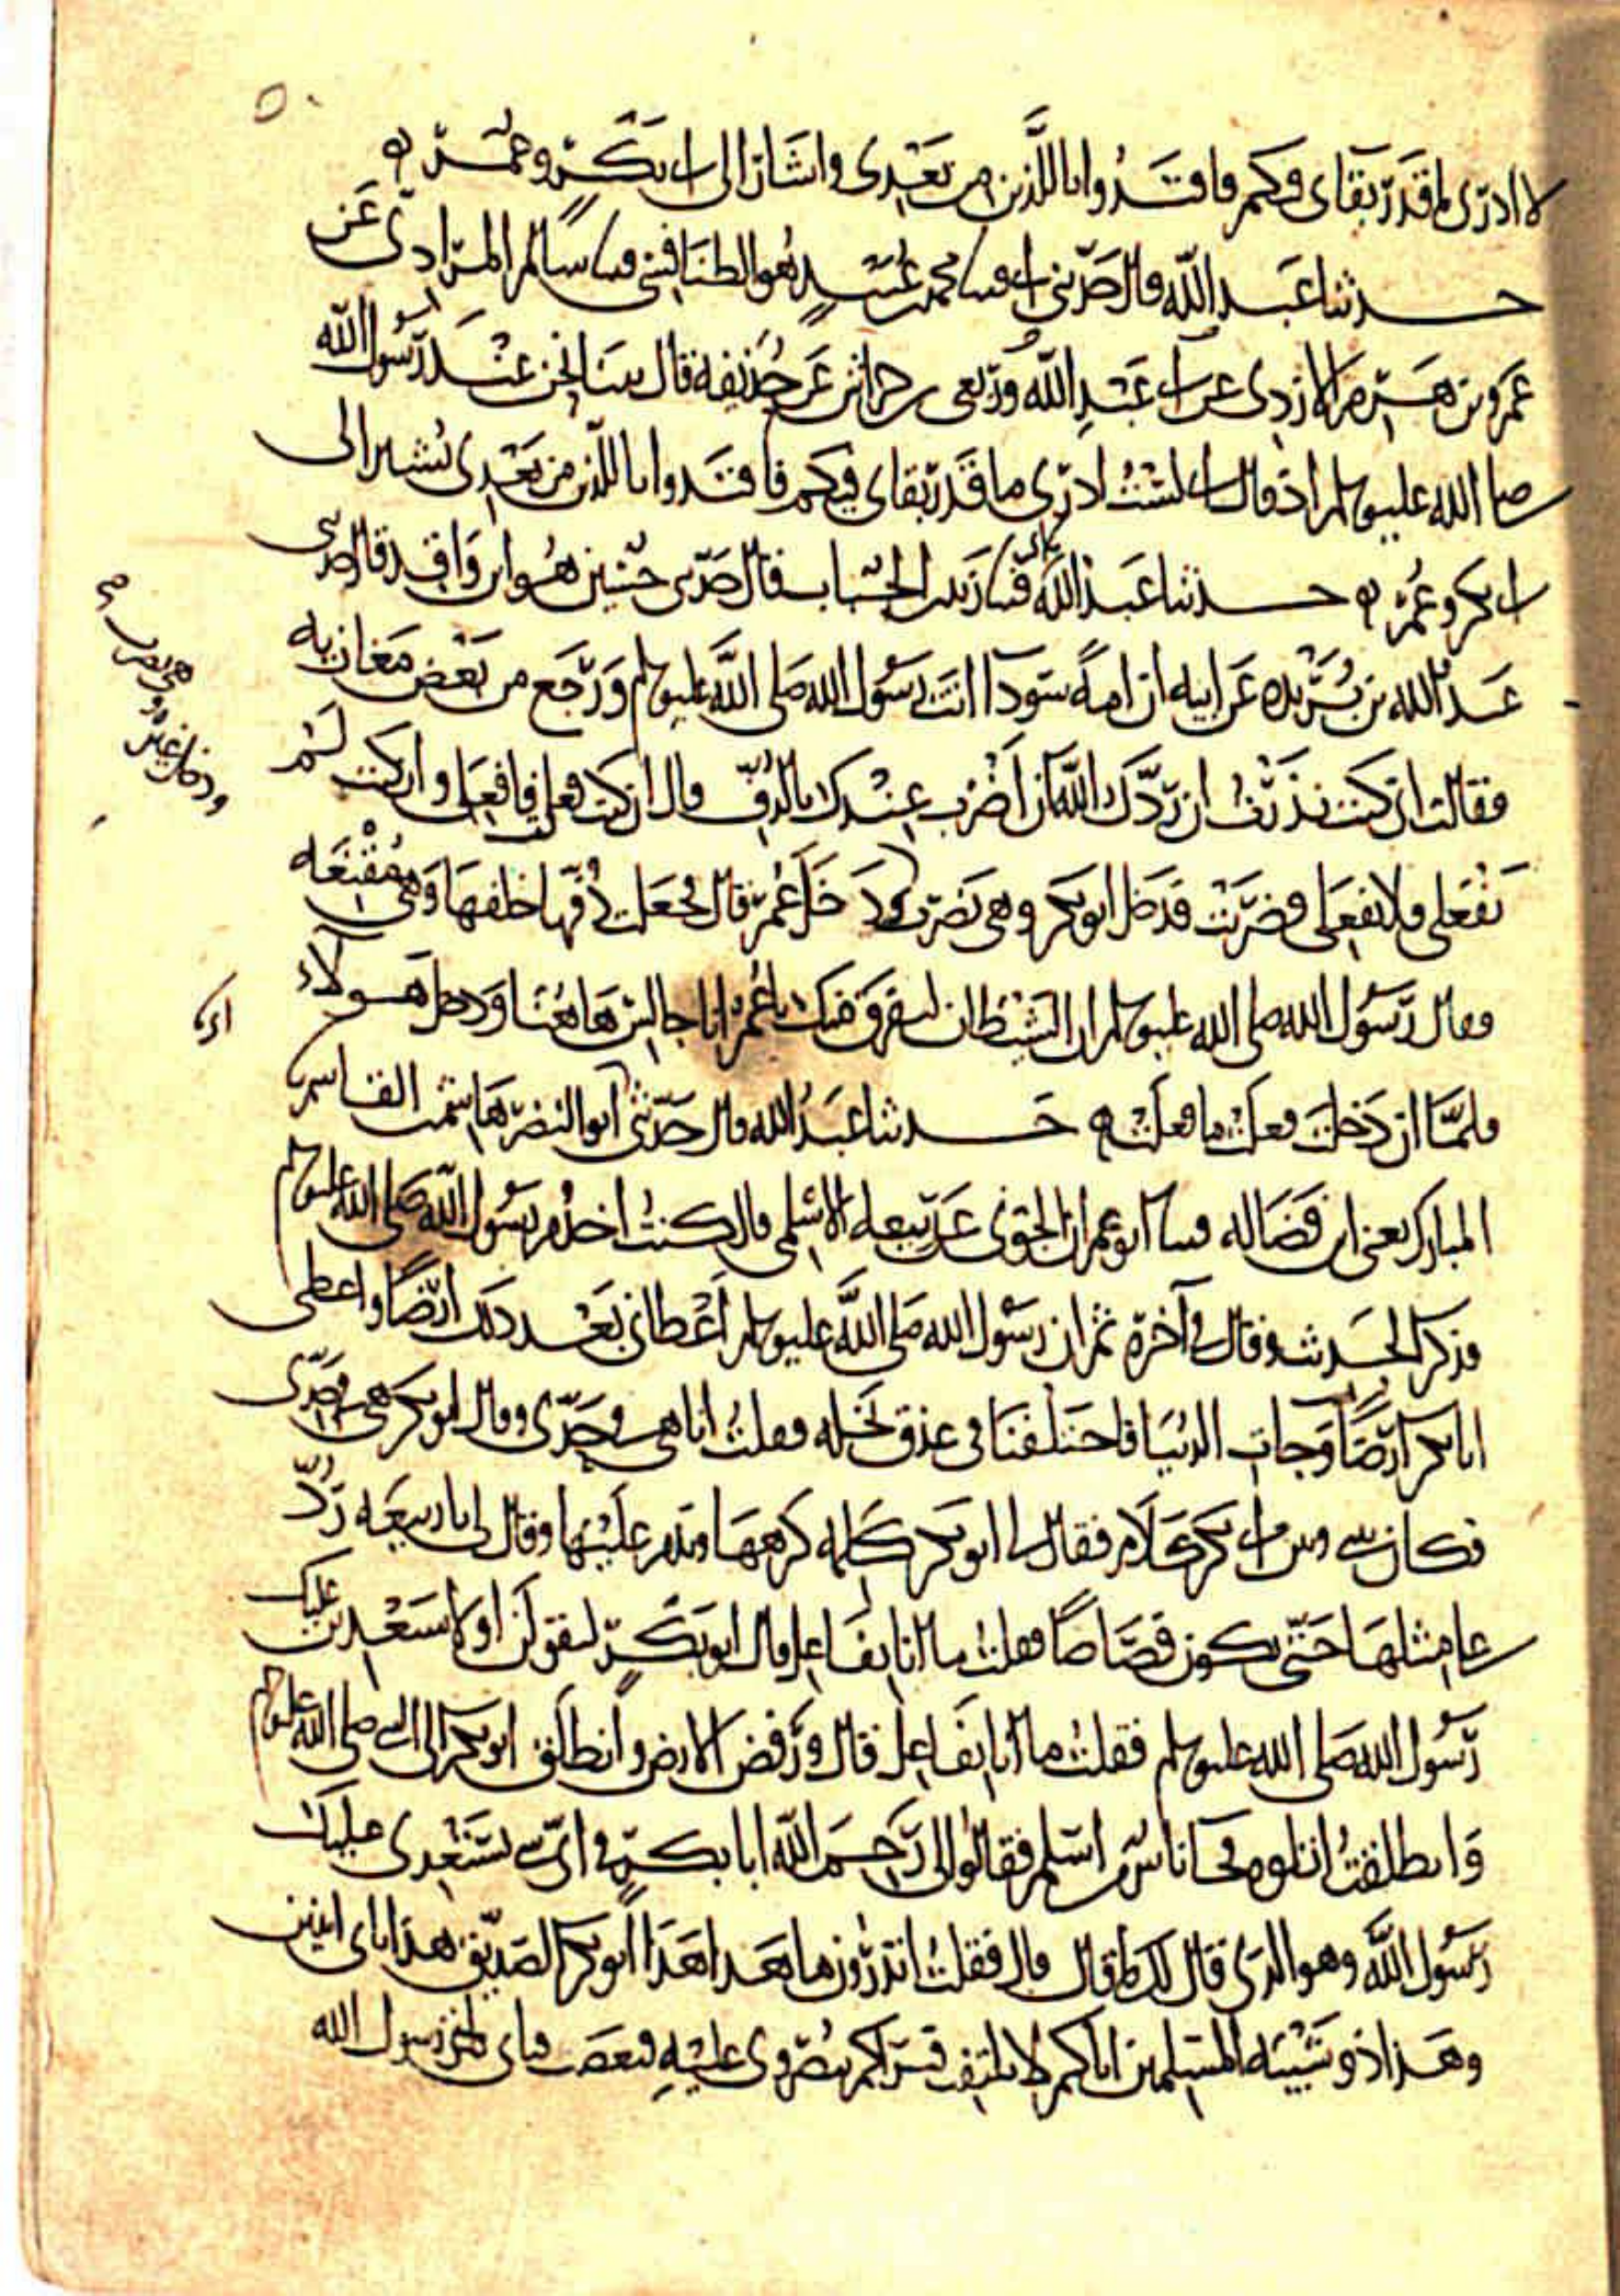 ٥٠
لا ادرى ما قدر بقاى فيكم فاقتدوا باللذين من بعدى واشار الى ابى بكر وعمر ه
حدثنا عبد الله قال حدثنى ابى قثنا محمد بن عبيد هو الطنافسى قثنا سالم المرادى عن
عمرو بن هرم الازدى عن ابى عبد الله وربعى بن حراش عن حذيفة قال بينا نحن عند رسول الله
صلى الله عليه وسلم اذ قال انى لست ادرى ما قدر بقاى فيكم فاقتدوا باللذين من بعدى يشير الى
ابى بكر وعمر ه حدثنا عبد الله قثنا زيد بن الحباب قال حدثنى حسين هو ابن واقد قال حدثنى
عبد الله بن بريده عن ابيه ان امة سودا اتت رسول الله صلى الله عليه وسلم ورجع من بعض مغازيه
فقالت انى كنت نذرت ان ردك الله ان اضرب عندك بالدف قال ان كنت فعلت فافعلى وان كنت لم
تفعلى فلا تفعلى فضربت فدخل ابو بكر وهى تضرب دخل عمر قال فجعلت دفها خلفها وهى مقنعه
فقال رسول الله صلى الله عليه وسلم ان الشيطان ليفرق منك يا عمر انا جالس هاهنا ودخل هولاء
فلما ان دخلت فعلت ما فعلت ه حدثنا عبد الله قال حدثنى ابو النضر هاشم بن القاسم
المبارك يعنى ابن فضاله قثنا ابو عمران الجونى عن ربيعه الاسلمى قال كنت اخدم رسول الله صلى الله عليه وسلم
فذكر الحديث وقال فى آخره ثم ان رسول الله صلى الله عليه وسلم اعطانى بعد ذلك ارضا واعطى
ابا بكر ارضا وجات الدنيا فاختلفنا فى عذق نخله فقلت انا هى فى حدى وقال ابو بكر هى فى حدى
فكان بينى وبين ابى بكر كلام فقال لى ابو بكر كلمه كرهها وندم عليها وقال لى يا ربيعه رد
على مثلها حتى يكون قصاصا فقلت ما انا بفاعل قال ابو بكر لتقولن او لاستعدين عليك
رسول الله صلى الله عليه وسلم فقلت ما انا بفاعل قال ورفض الارض وانطلق ابو بكر الى النبى صلى الله عليه وسلم
وانطلقت اتلوه فجا ناس من اسلم فقالوا لى رحم الله ابا بكر فى اى شى يستعدى عليك
رسول الله وهو الذى قال لك ما قال قال فقلت اتدرون ما هذا هذا ابو بكر الصديق هذا ثانى اثنين
وهذا ذو شيبه المسلمين اياكم لا يلتفت فيراكم تنصرونى عليه فيغضب فياتى رسول الله